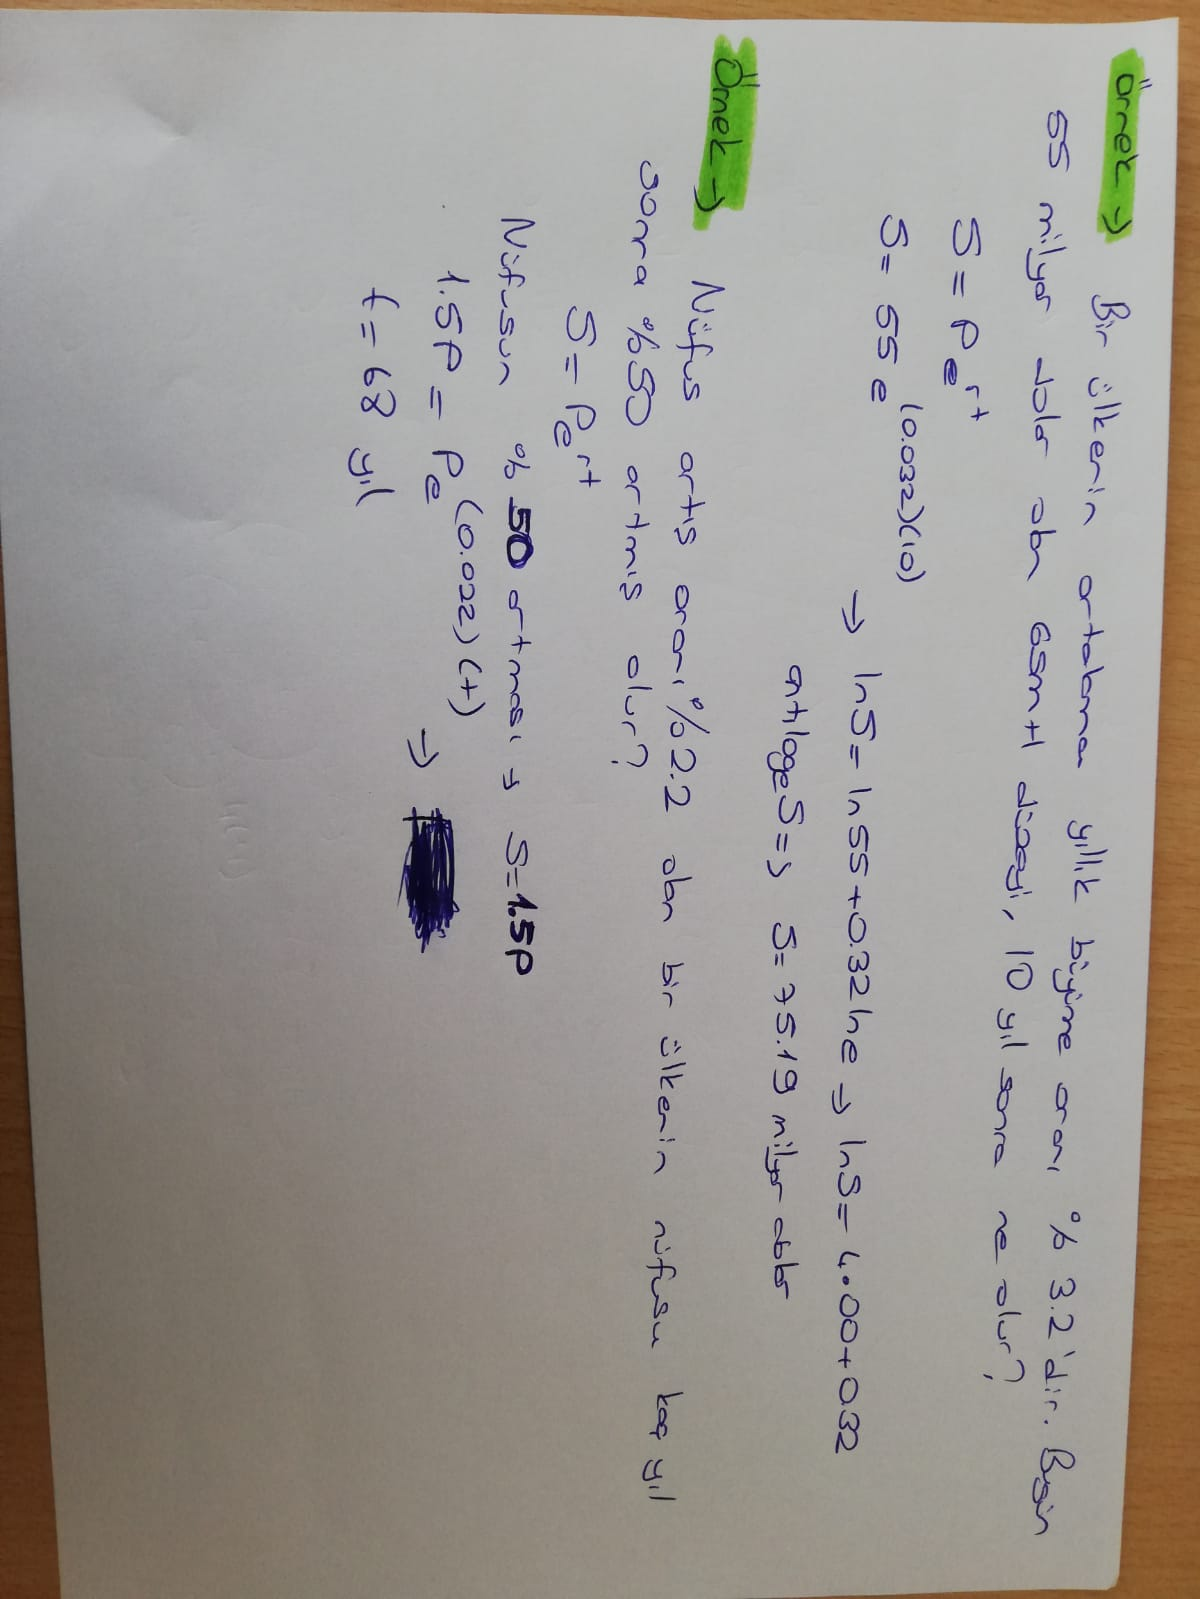 Örnek →
Bir ülkenin ortalama yıllık büyüme oranı % 3.2'dir. Bugün
55 milyar dolar olan GSMH düzeyi, 10 yıl sonra ne olur?
S = Pe^rt
S = 55 e^(0.032)(10)
→ lnS = ln55 + 0.32 lne → lnS = 4.00 + 0.32
antilogeS => S = 75.19 milyar dolar
Örnek →
Nüfus artış oranı %2.2 olan bir ülkenin nüfusu kaç yıl
sonra %50 artmış olur?
S = Pe^rt
Nüfusun % 50 artması → S = 1.5P
1.5P = Pe^(0.022)(t) →
t = 68 yıl